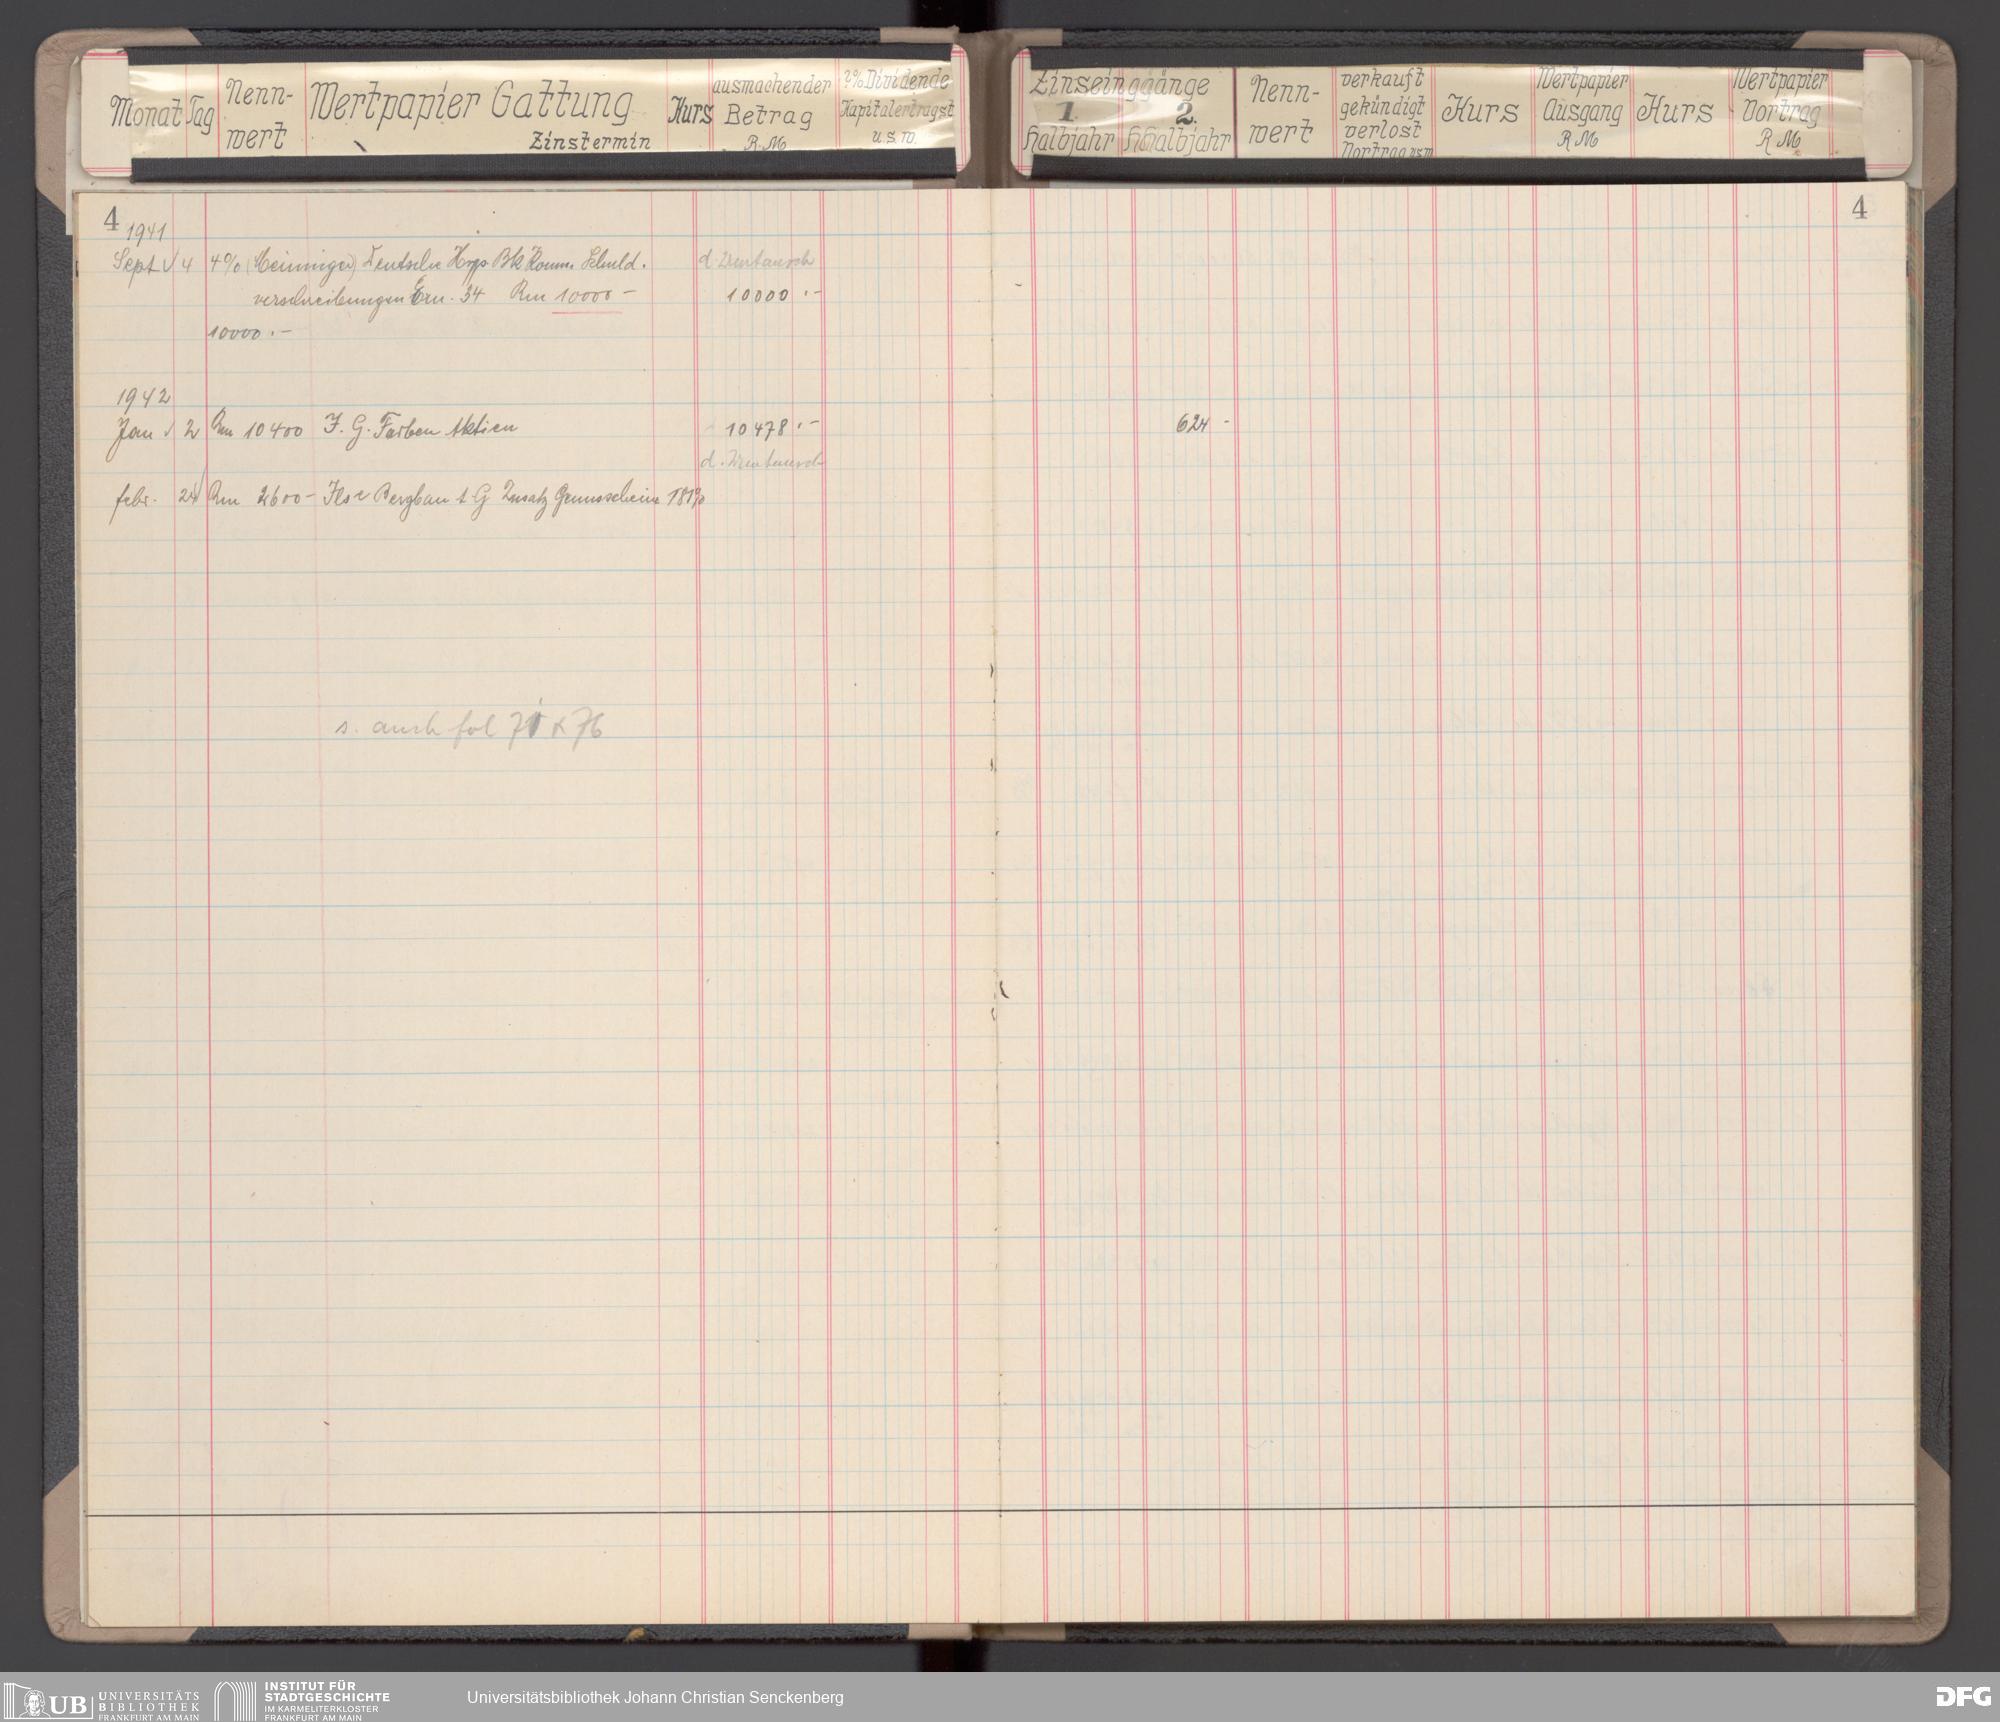 Monat Tag Nenn-wert Wertpapier Gattung Zinstermin Kurs ausmachender Betrag R.M 2% Dividende Kapitalertragst u.s.w.
Zinseinggänge 1. Halbjahr 2. Halbjahr Nenn-wert verkauft gekündigt verlost Vortrag usw Kurs Wertpapier Ausgang RM Kurs Wertpapier Vortrag RM
4 4
1941
Sept 4 4% (Meininger) Deutsche Hyp Bk Komm. Schuld. d. Umtausch
verschreibungen Em. 34 Rm 10000 – 10000 .–
10000 .–
1942
Jan 2 Rm 10400 I. G. Farben Aktien 10478 .– 624 -
d. Umtausch
febr. 24 Rm 2600 – Ilse Bergbau A G Zusatz Genussscheine 181%
s. auch fol 71 & 76
UB UNIVERSITÄTS
BIBLIOTHEK
FRANKFURT AM MAIN
INSTITUT FÜR
STADTGESCHICHTE
IM KARMELITERKLOSTER
FRANKFURT AM MAIN
Universitätsbibliothek Johann Christian Senckenberg
DFG